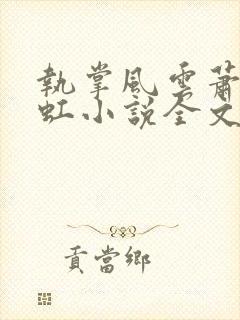 執掌風雲蕭
虹小說全文
貢當鄉